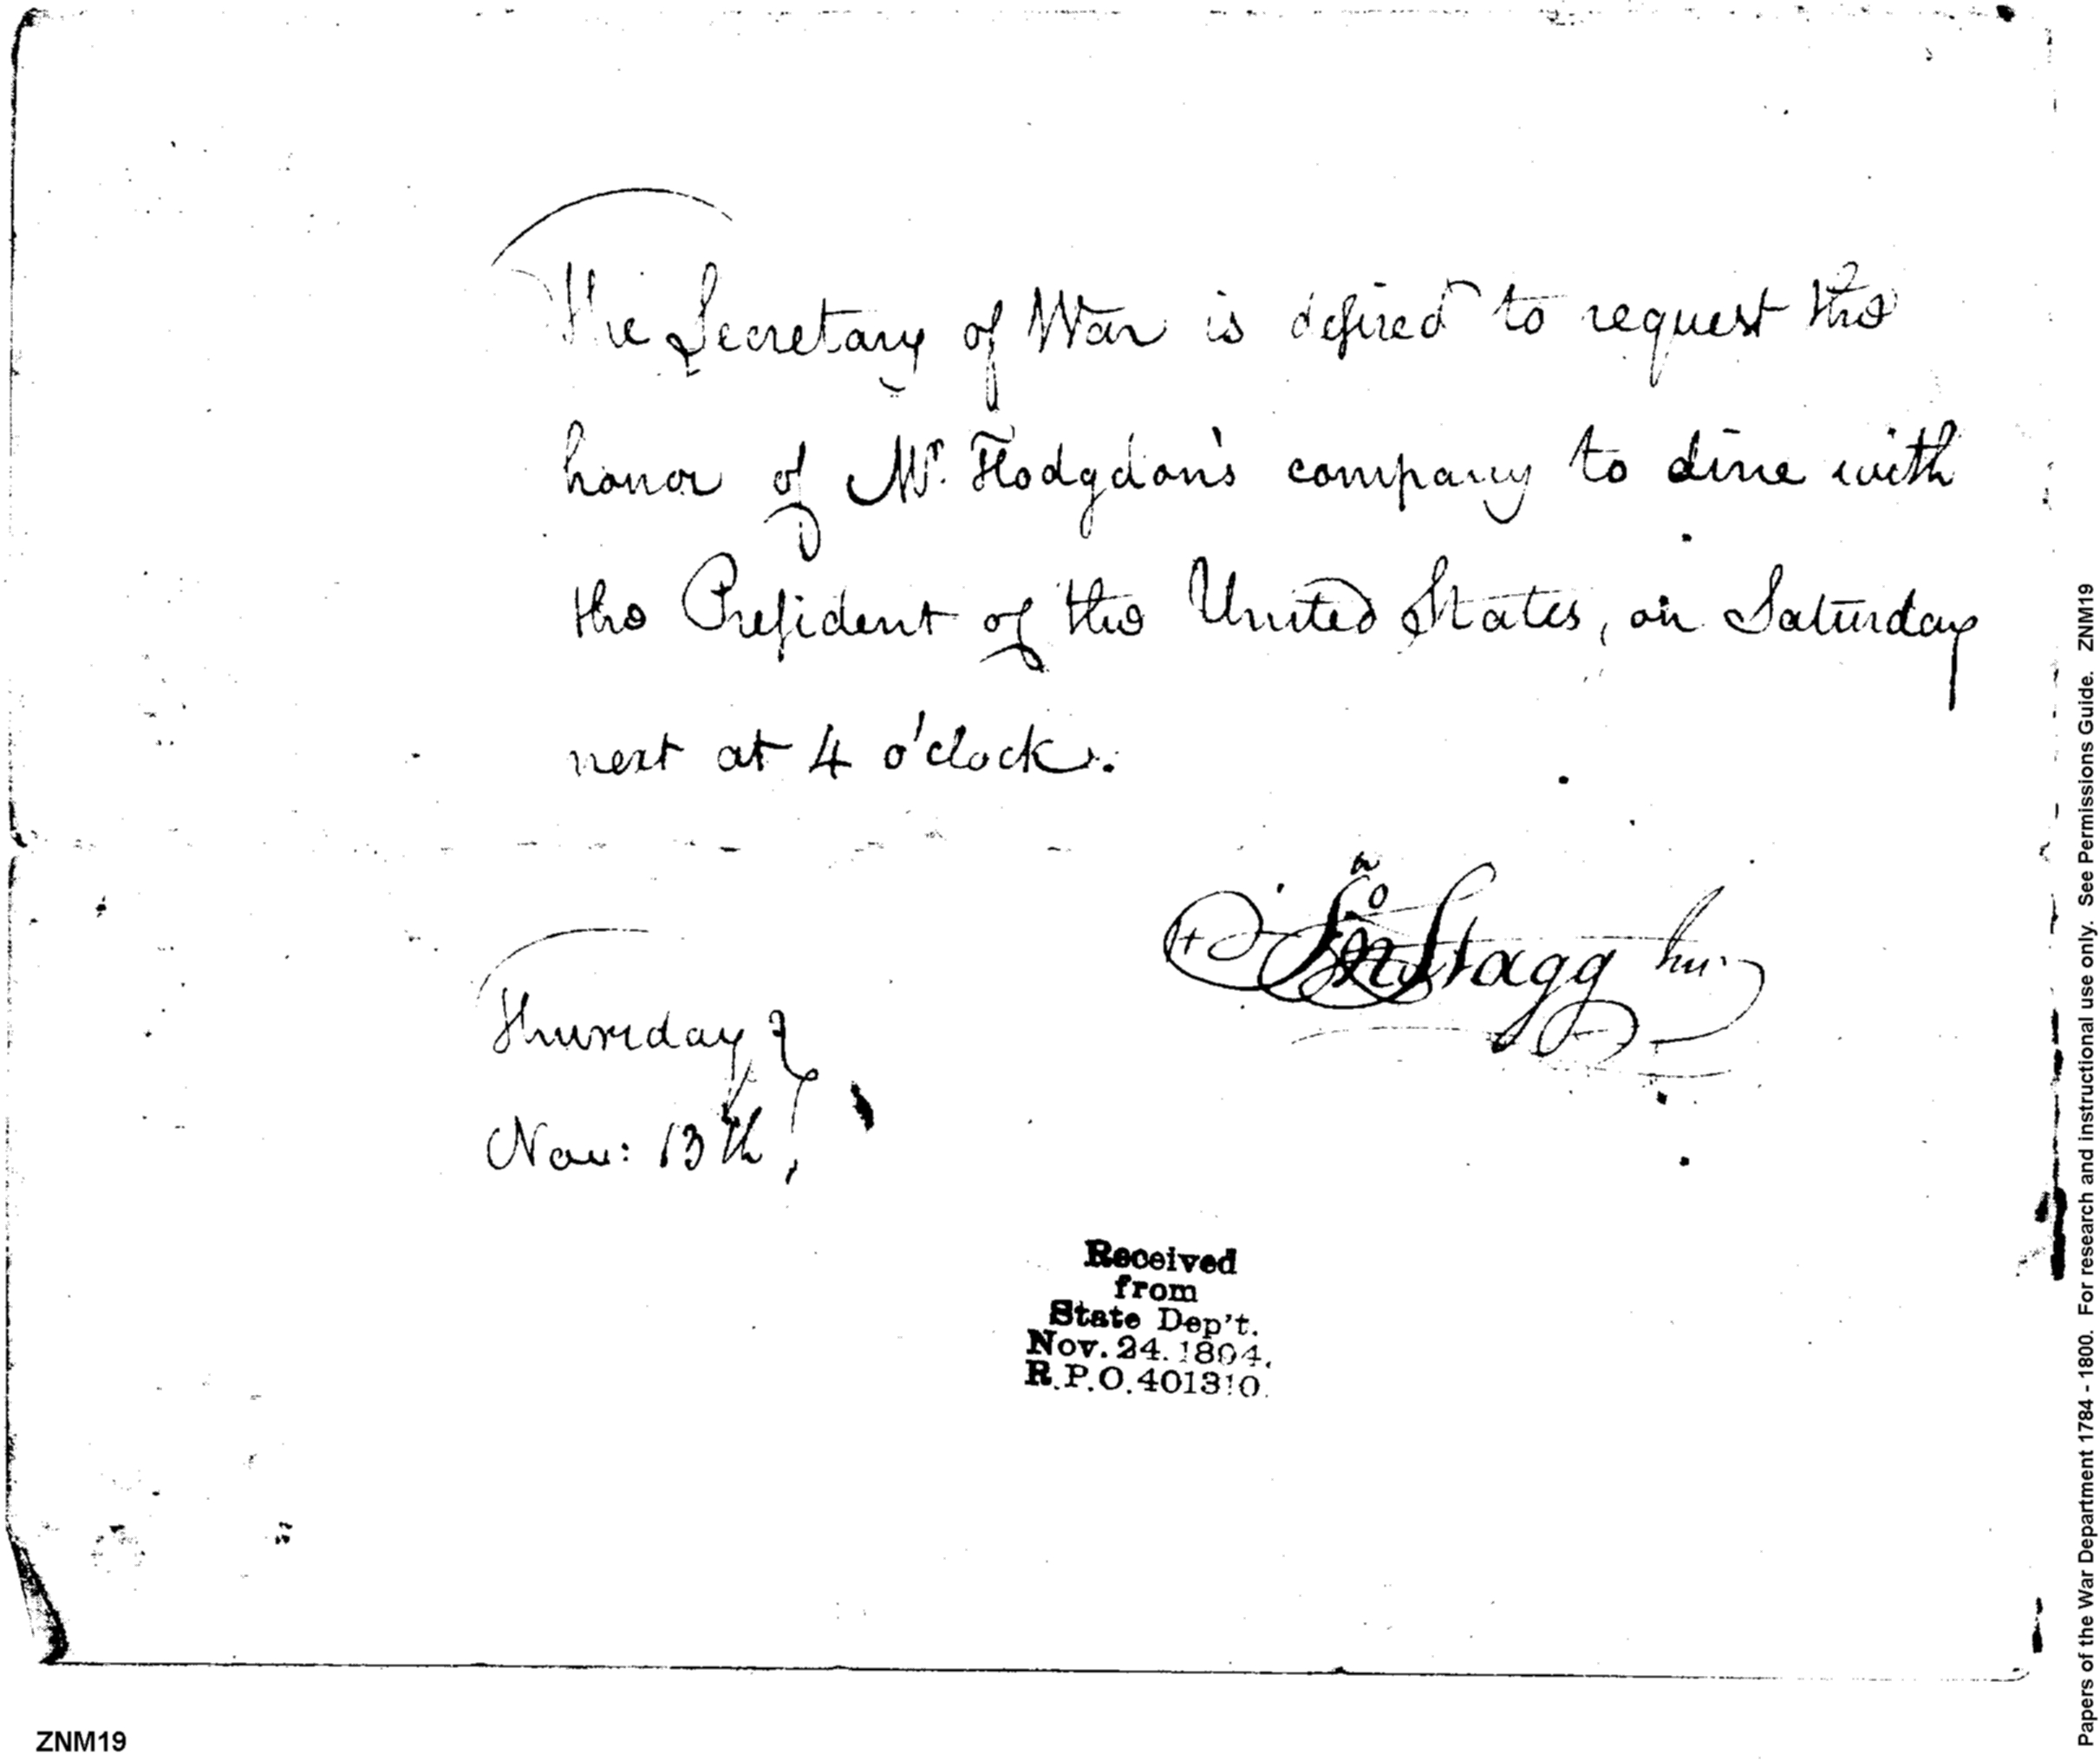 The Secretary of War is desired to request the
honor of Mr. Hodgdon's company to dine with
the President of the United States, on Saturday
next at 4 o'clock.
Jno Stagg Jur.
Thursday
Nov: 13th
Received
from
State Dep't.
Nov. 24. 1894.
R.P.O. 401310.
ZNM19
Papers of the War Department 1784 - 1800. For research and instructional use only. See Permissions Guide. ZNM19